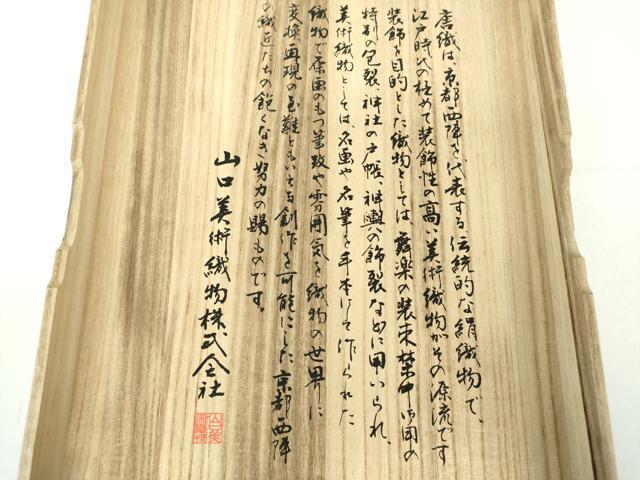 唐織は、京都西陣を代表する伝統的な絹織物で、
江戸時代の極めて装飾性の高い美術織物がその源流です
装飾を目的とした織物としては、舞楽の装束禁中御用の
特別の包裂、神社の戸帳、神輿の飾裂などに用いられ、
美術織物としては、名画や名筆を手本にして作られた
織物で原画のもつ筆致や雰囲気を織物の世界に
変換再現の至難ともいえる創作を可能にした京都西陣
の織匠たちの飽くなき努力の賜ものです。
山口美術織物株式会社